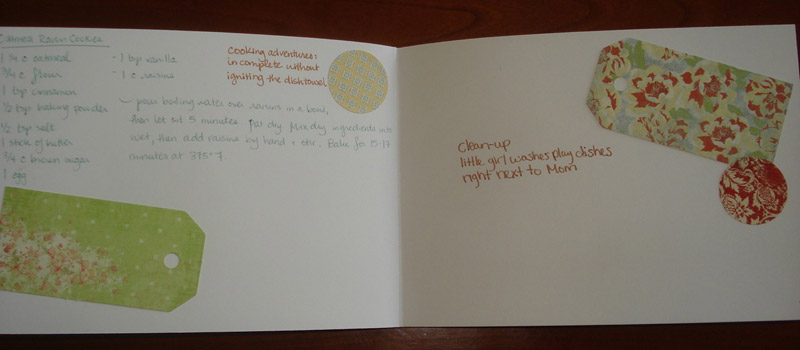 Oatmeal Raisin Cookies
1 ¼ c oatmeal
¾ c flour
1 tsp cinnamon
½ tsp baking powder
½ tsp salt
1 stick of butter
¾ c brown sugar
1 egg
- 1 tsp vanilla
- 1 c raisins
- pour boiling water over raisins in a bowl,
then let sit 5 minutes. Pat dry. Mix dry ingredients into
wet, then add raisins by hand + stir. Bake for 15-17
minutes at 375°F.
Cooking adventures:
incomplete without
igniting the dishtowel
Clean-up
little girl washes play dishes
right next to Mom